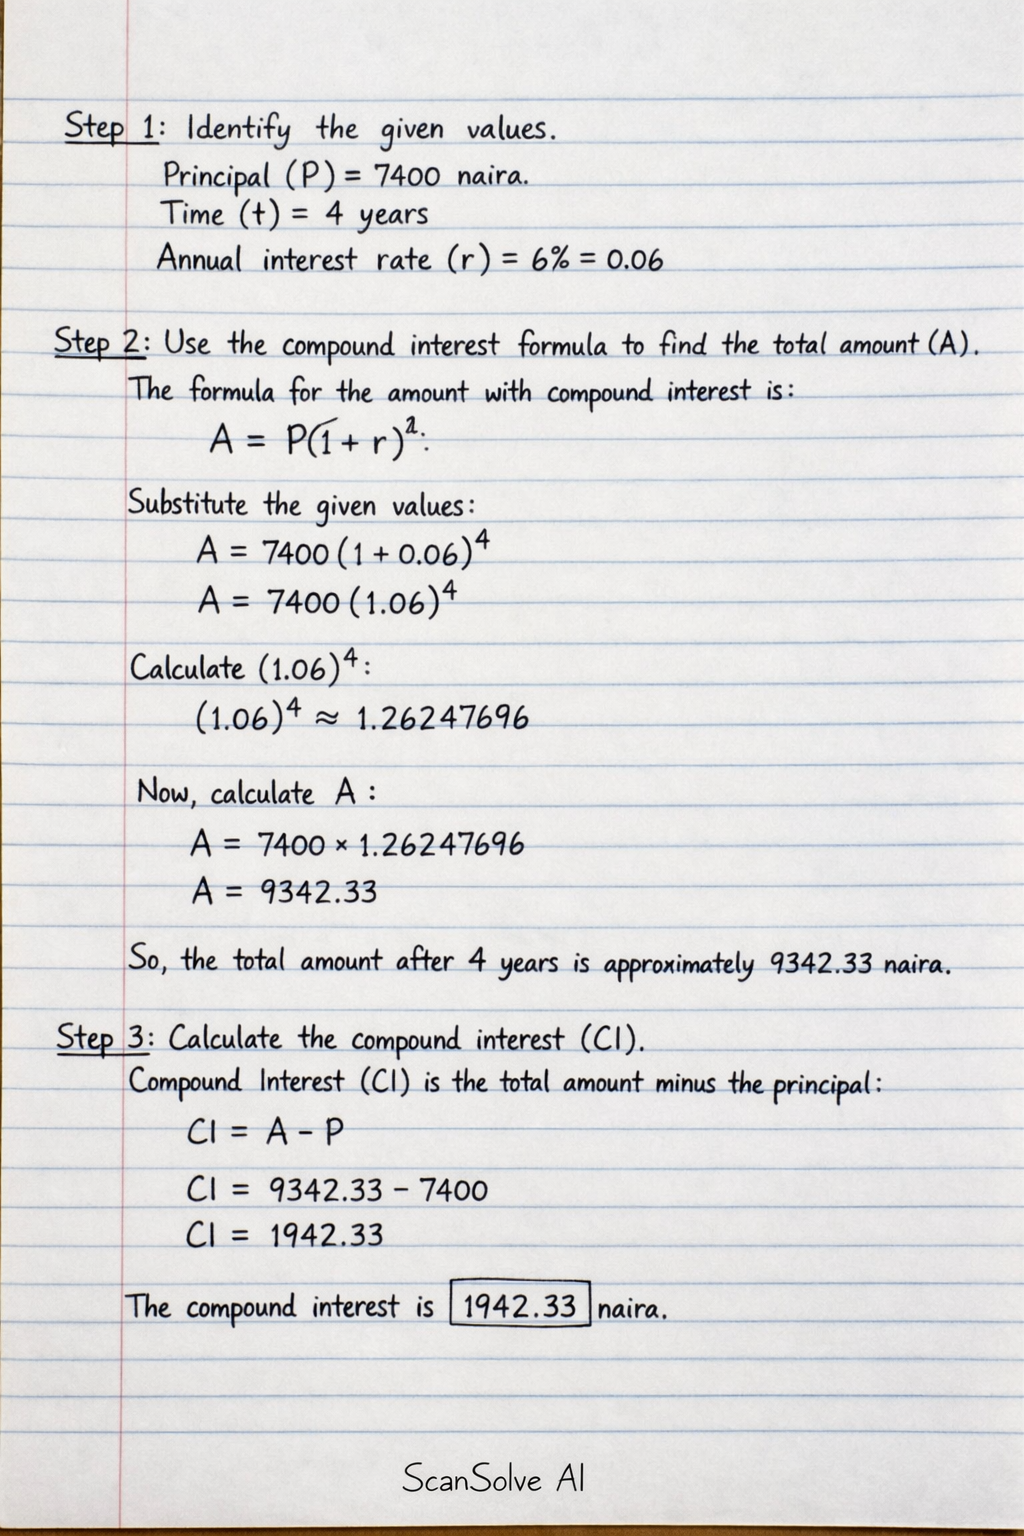 Step 1: Identify the given values.
Principal (P) = 7400 naira.
Time (t) = 4 years
Annual interest rate (r) = 6% = 0.06
Step 2: Use the compound interest formula to find the total amount (A).
The formula for the amount with compound interest is:
A = P(1 + r)²:
Substitute the given values:
A = 7400 (1 + 0.06)⁴
A = 7400 (1.06)⁴
Calculate (1.06)⁴:
(1.06)⁴ ≈ 1.26247696
Now, calculate A :
A = 7400 × 1.26247696
A = 9342.33
So, the total amount after 4 years is approximately 9342.33 naira.
Step 3: Calculate the compound interest (CI).
Compound Interest (CI) is the total amount minus the principal:
CI = A - P
CI = 9342.33 - 7400
CI = 1942.33
The compound interest is 1942.33 naira.
ScanSolve AI